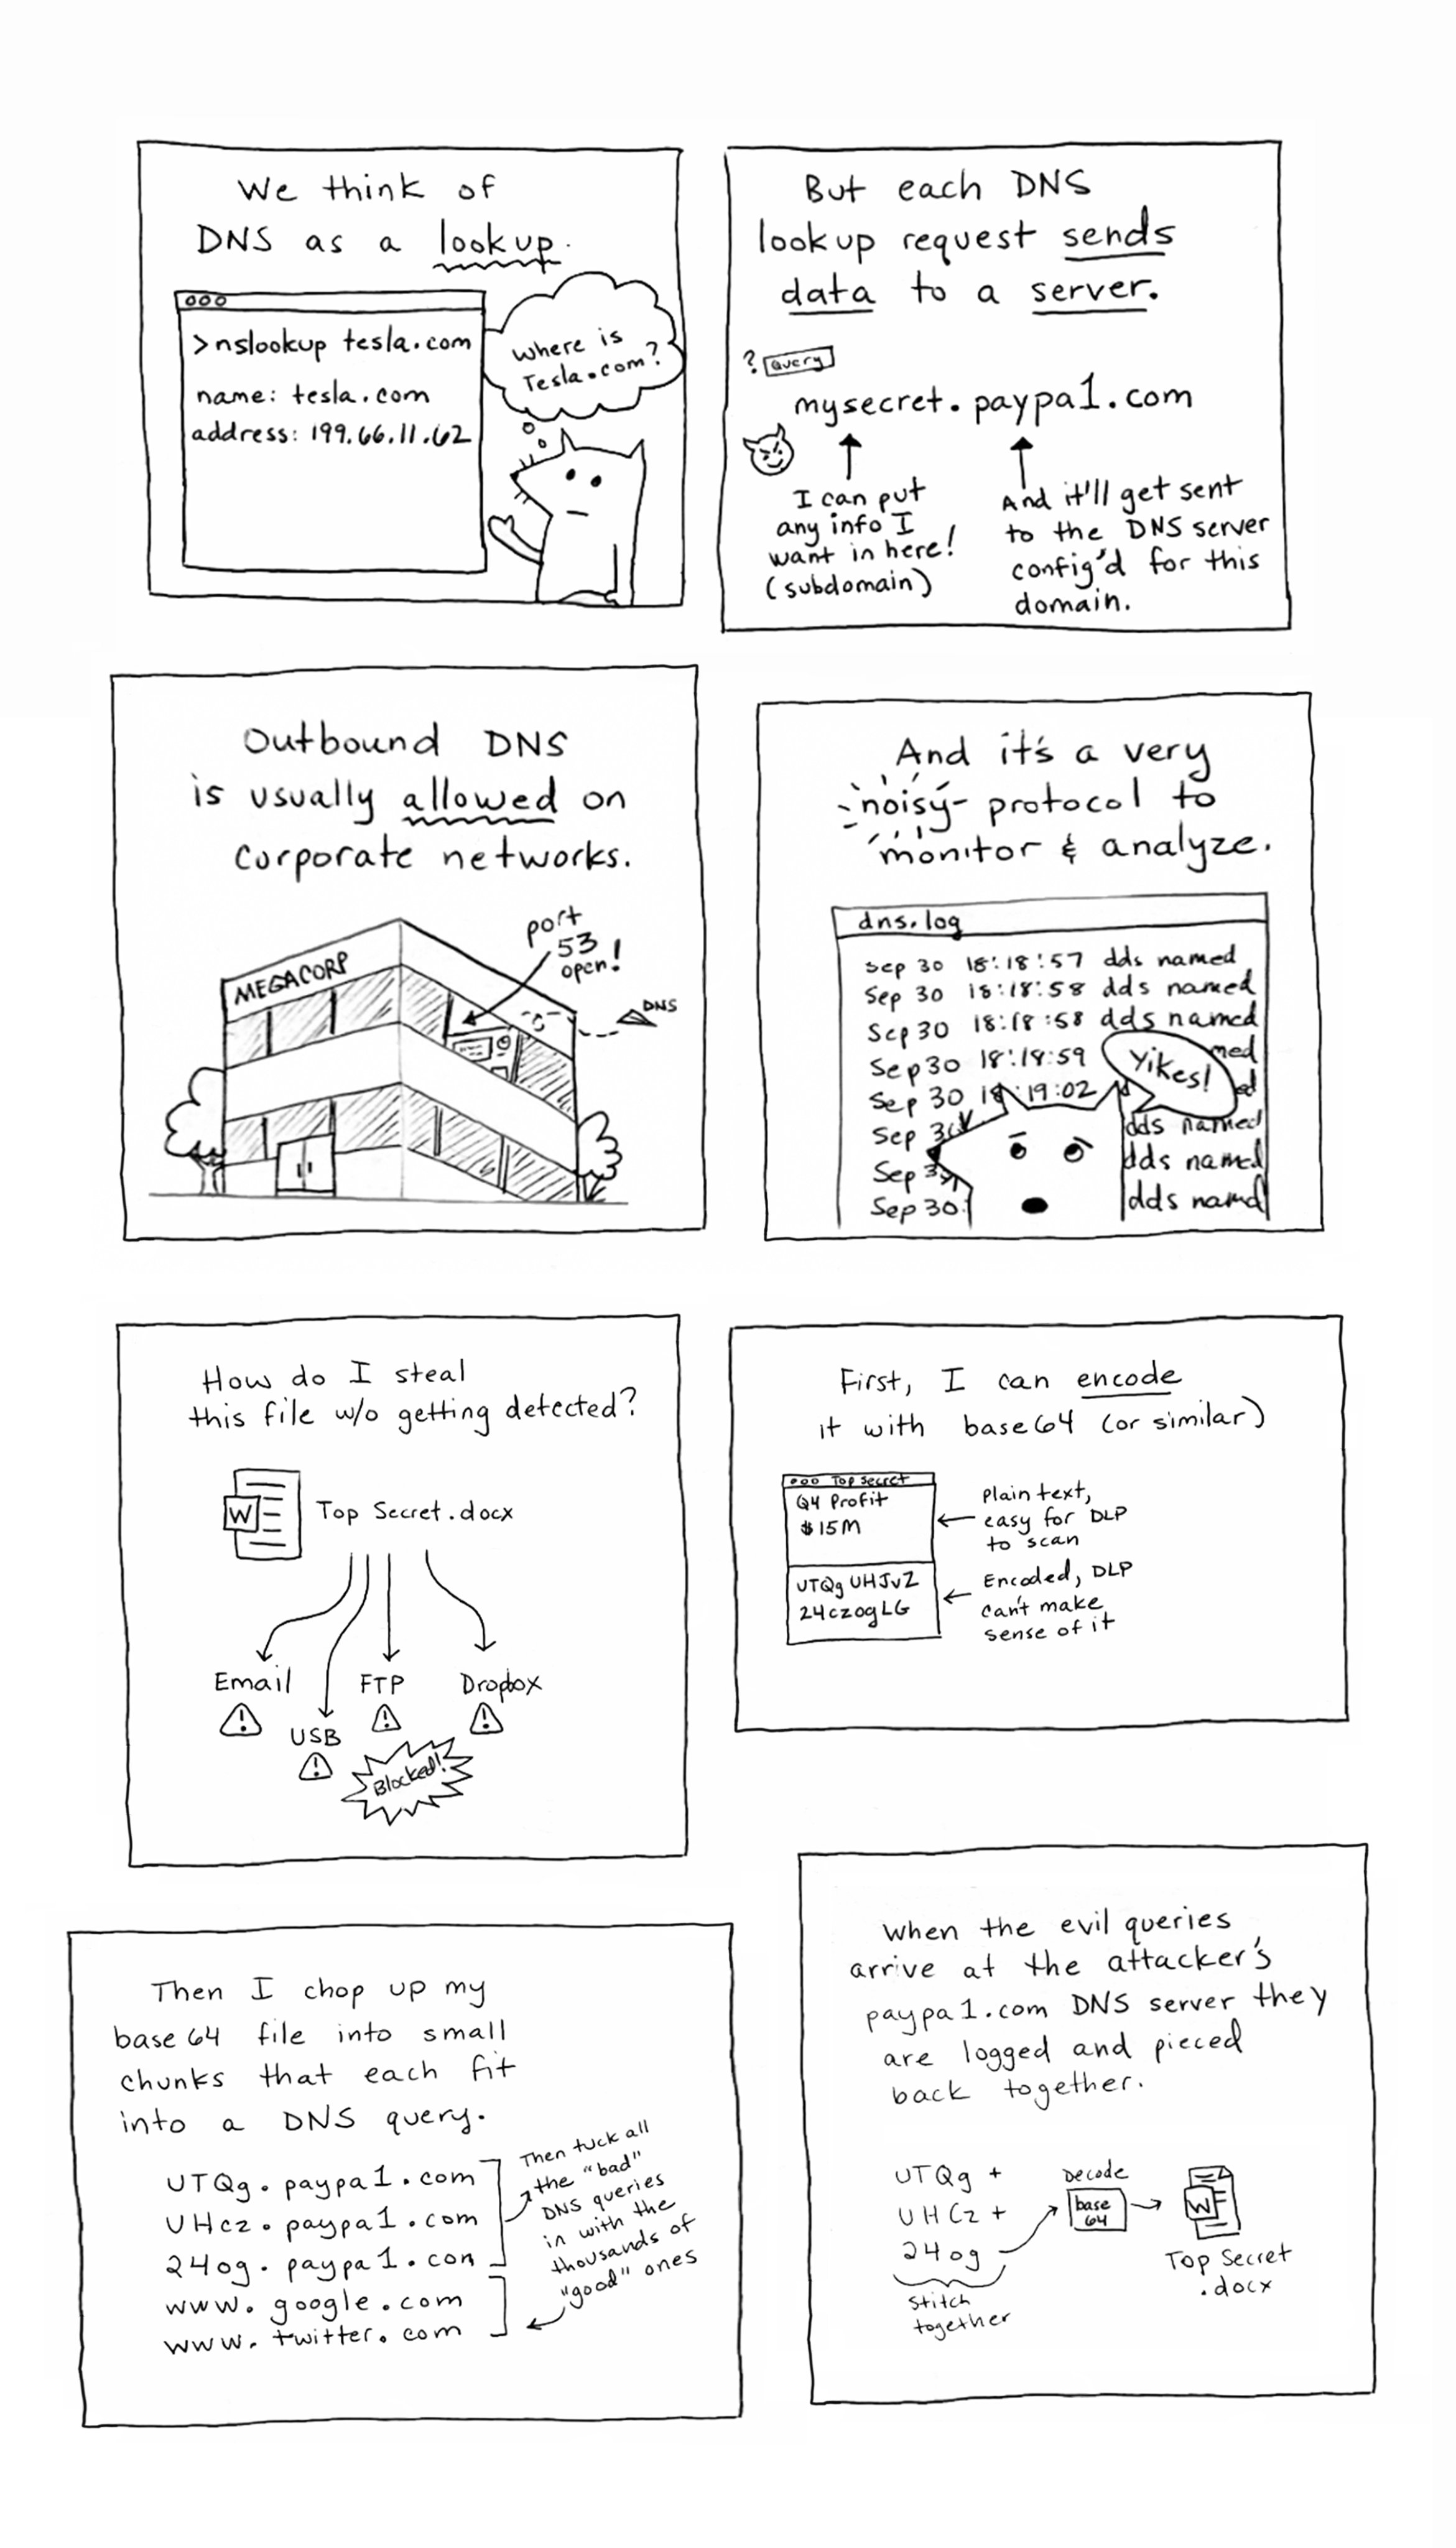 We think of
DNS as a lookup.
>nslookup tesla.com
name: tesla.com
address: 199.66.11.62
Where is
Tesla.com?
But each DNS
lookup request sends
data to a server.
? Query
mysecret.paypa1.com
I can put
any info I
want in here!
(subdomain)
And it'll get sent
to the DNS server
config'd for this
domain.
Outbound DNS
is usually allowed on
corporate networks.
MEGACORP
port
53
open!
DNS
And it's a very
noisy protocol to
monitor & analyze.
dns.log
Sep 30 18:18:57 dds named
Sep 30 18:18:58 dds named
Sep 30 18:18:58 dds named
Sep 30 18:18:59 med
Sep 30 18:19:02 ed
Yikes!
Sep 30 dds named
Sep 3 dds named
Sep 30 dds named
How do I steal
this file w/o getting detected?
W
Top Secret.docx
Email
USB
FTP
Dropbox
Blocked!
First, I can encode
it with base64 (or similar)
Top Secret
Q4 Profit
$15M
Plain text,
easy for DLP
to scan
UTQgUHJvZ
24czogLG
Encoded, DLP
can't make
sense of it
Then I chop up my
base64 file into small
chunks that each fit
into a DNS query.
UTQg.paypa1.com
UHcz.paypa1.com
24og.paypa1.com
www.google.com
www.twitter.com
Then tuck all
the "bad"
DNS queries
in with the
thousands of
"good" ones
When the evil queries
arrive at the attacker's
paypa1.com DNS server they
are logged and pieced
back together.
UTQg +
UHCz +
24og
Stitch
together
Decode
base
64
W
Top Secret
.docx